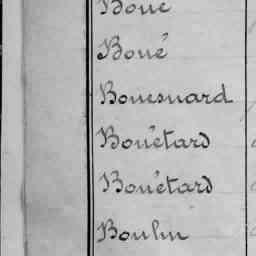 Boué
Boué
Bouesnard
Bouëtard
Bouëtard
Bouhu